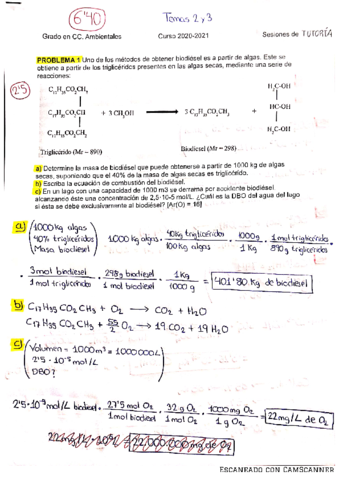 6'40
Temas 2 y 3
Grado en CC. Ambientales
Curso 2020-2021
Sesiones de TUTORÍA
PROBLEMA 1 Uno de los métodos de obtener biodiésel es a partir de algas. Este se
obtiene a partir de los triglicéridos presentes en las algas secas, mediante una serie de
reacciones:
2'5
C₁₇H₃₅CO₂CH₂
C₁₇H₃₅CO₂CH + 3 CH₃OH → 3 C₁₇H₃₅CO₂CH₃ +
C₁₇H₃₅CO₂CH₂
H₂C-OH
HC-OH
H₂C-OH
Triglicérido (Mr = 890)
Biodiesel (Mr = 298)
a) Determine la masa de biodiésel que puede obtenerse a partir de 1000 kg de algas
secas, suponiendo que el 40% de la masa de algas secas es triglicérido.
b) Escriba la ecuación de combustión del biodiésel.
c) En un lago con una capacidad de 1000 m3 se derrama por accidente biodiésel
alcanzando éste una concentración de 2,5·10-5 mol/L. ¿Cuál es la DBO del agua del lago
si ésta se debe exclusivamente al biodiésel? [Ar(O) = 16]
a) 1000kg algas
40% triglicéridos
Masa biodiesel
1000 kg algas · 40kg triglicérido / 100 kg algas · 1000g / 1 kg · 1 mol triglicérido / 890g triglicérido
· 3 mol biodiesel / 1 mol triglicérido · 298g biodiesel / 1 mol biodiesel · 1 kg / 1000 g = 401'80 kg de biodiesel
b) C₁₇H₃₅CO₂CH₃ + O₂ → CO₂ + H₂O
C₁₇H₃₅CO₂CH₃ + 55/2 O₂ → 19 CO₂ + 19 H₂O
c) Volumen = 1000m³ = 1000000L
2'5·10⁻⁵ mol/L
DBO?
2'5·10⁻⁵ mol/L biodiesel · 27'5 mol O₂ / 1 mol biodiesel · 32 g O₂ / 1 mol O₂ · 1000 mg O₂ / 1 g O₂ = 22 mg/L de O₂
ESCANEADO CON CAMSCANNER